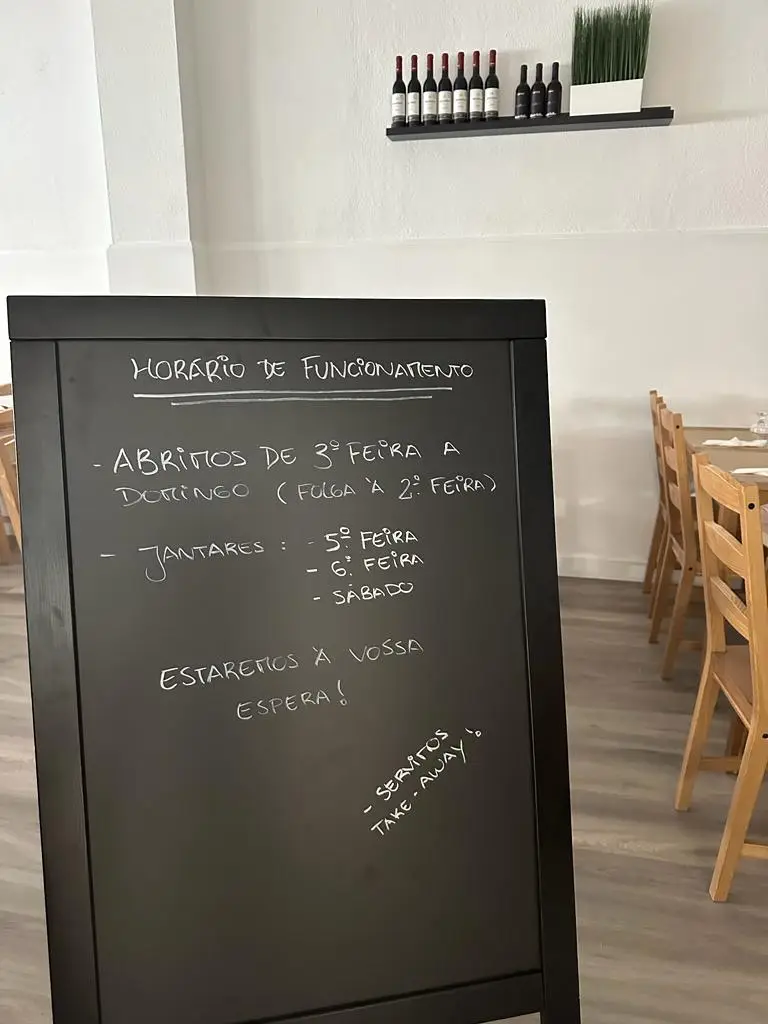 HORÁRIO DE FUNCIONAMENTO
- ABRIMOS DE 3ª FEIRA A
DOMINGO (FOLGA À 2ª FEIRA)
- JANTARES : - 5ª FEIRA
- 6ª FEIRA
- SÁBADO
ESTAREMOS À VOSSA
ESPERA!
- SERVIMOS
TAKE-AWAY!